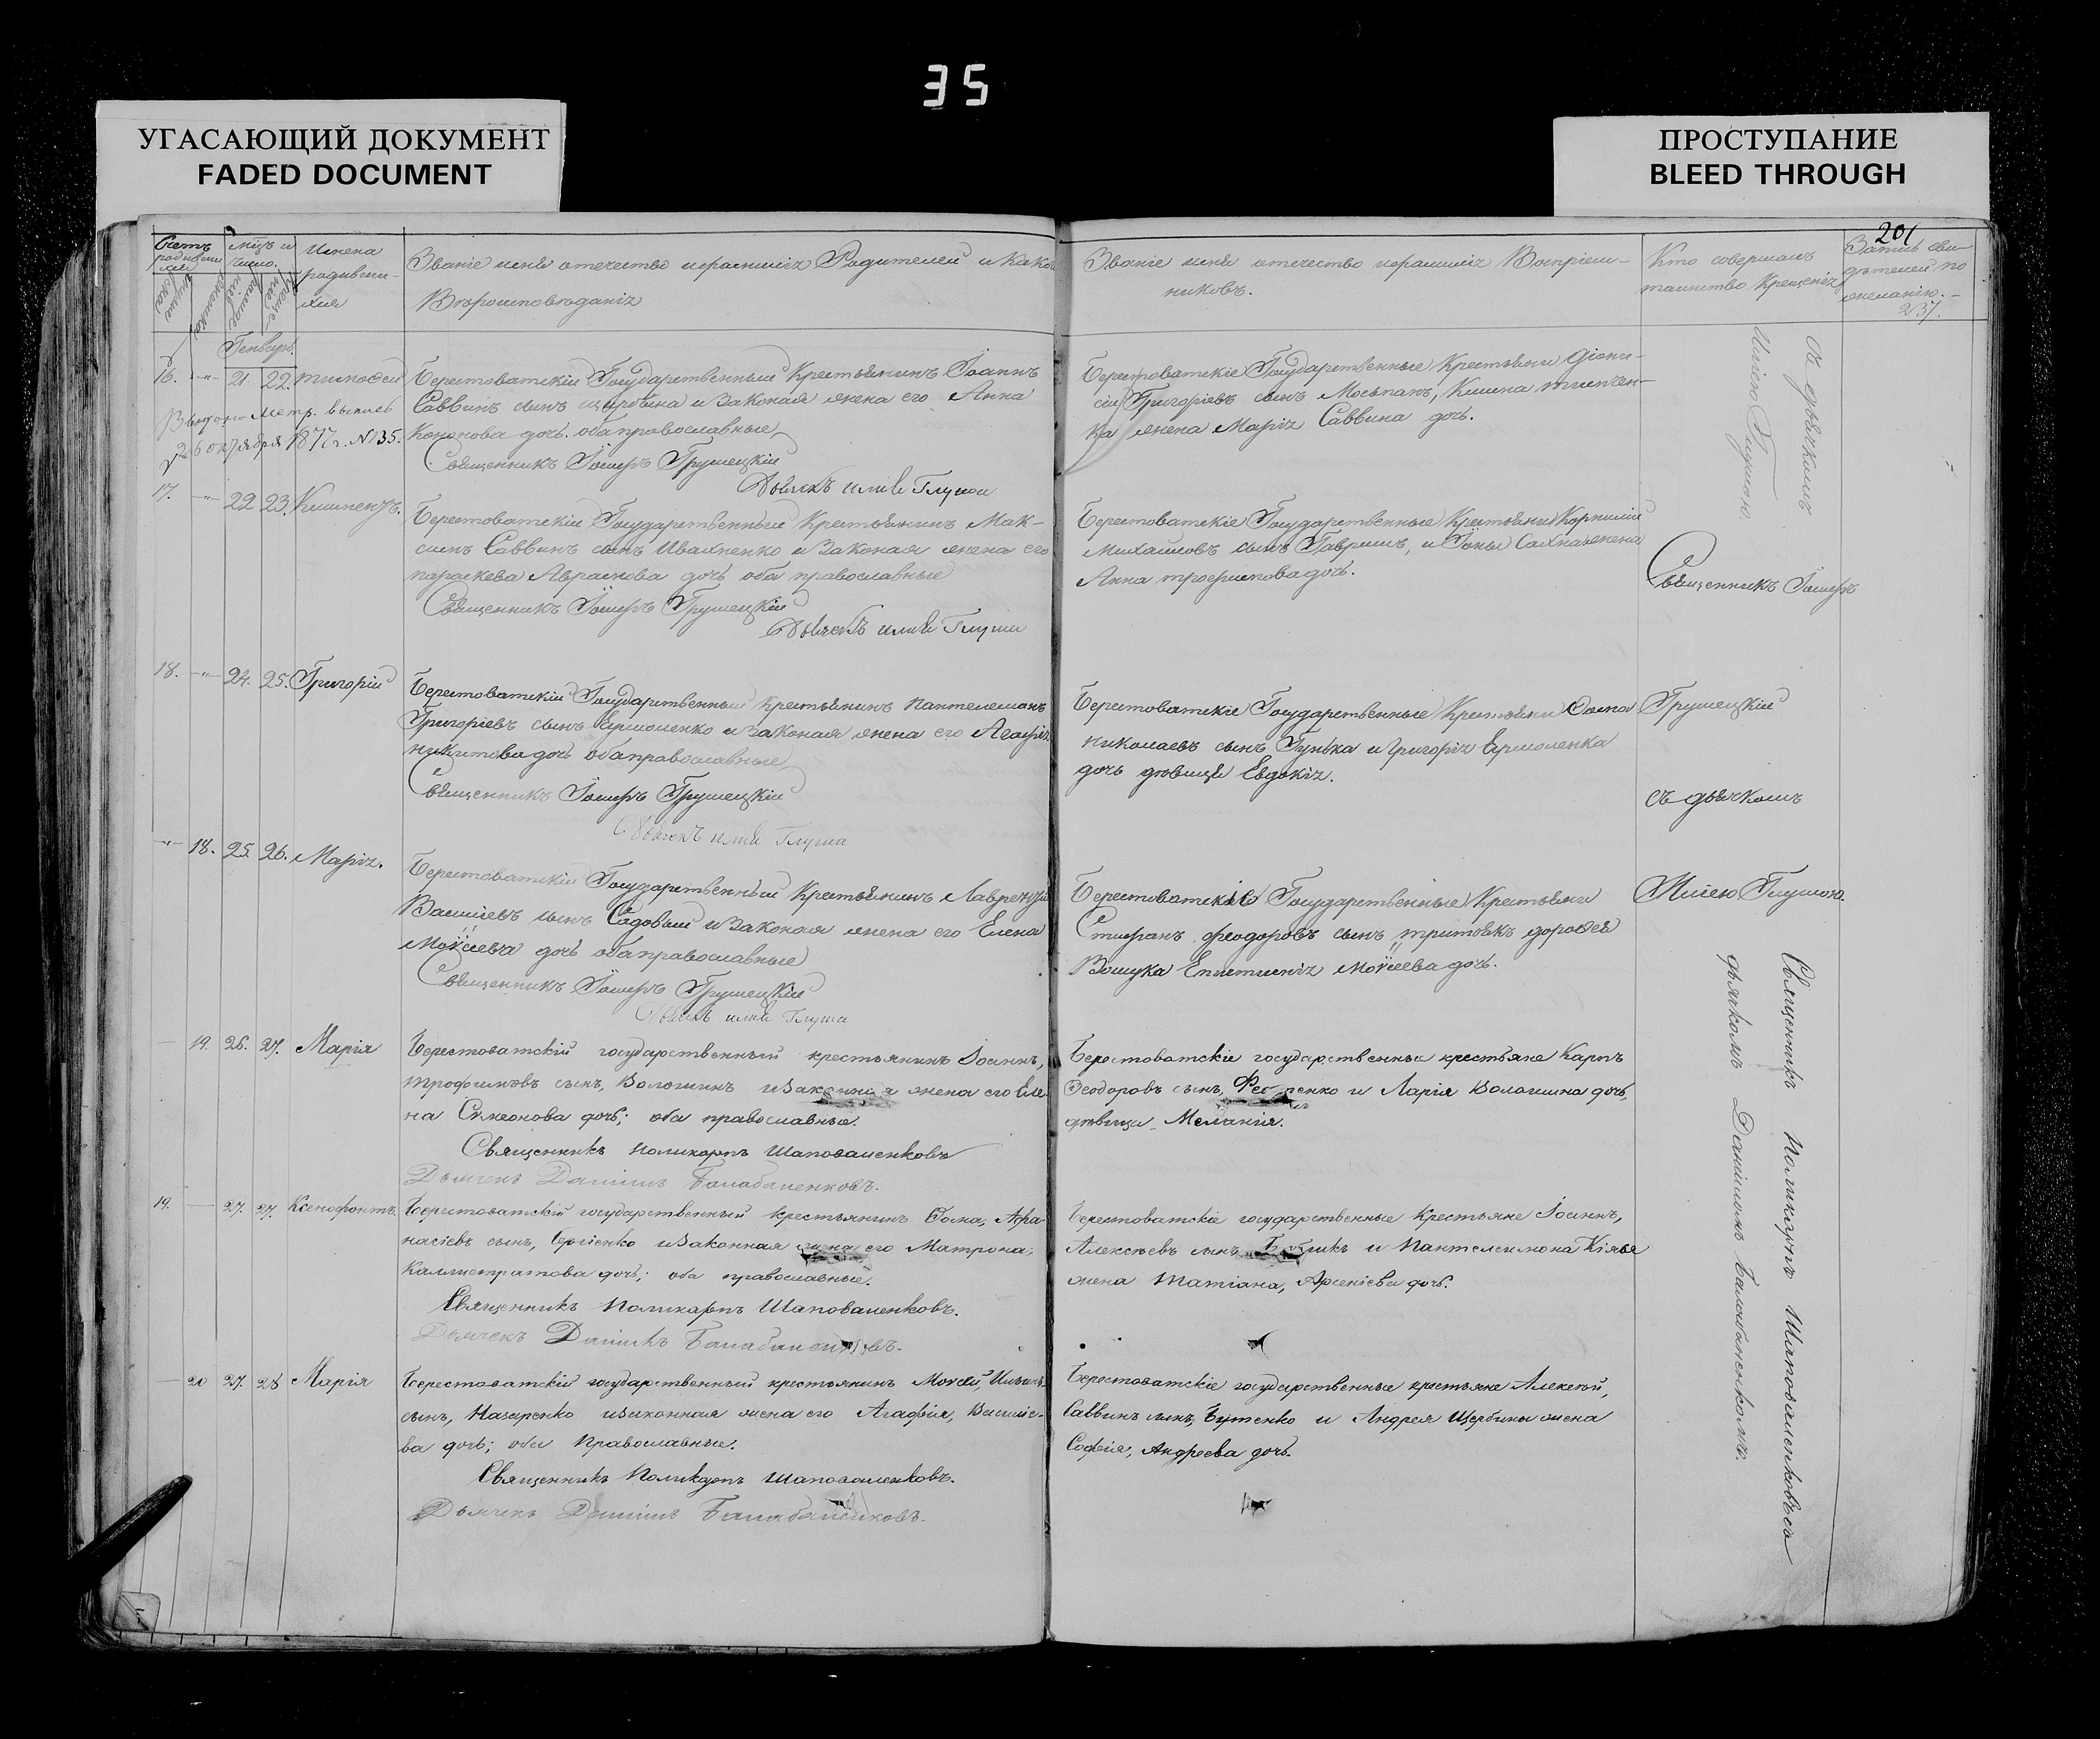 35
УГАСАЮЩИЙ ДОКУМЕНТ
FADED DOCUMENT
ПРОСТУПАНИЕ
BLEED THROUGH
201
Счетъ родившихся
Мѣс. и число.
Имена родивши-
хся
Званіе имя отечество и фамилія Родителей и какого
Вѣроисповѣданія
Званіе имя отечество и фамилія Воспріем-
никовъ.
Кто совершалъ
таинство Крещенія
237.
Генварь.
16. -"- 21. 22. Тимофей
Берестоватскій Государственный Крестьянинъ Іоаннъ
Саввинъ сынъ и Законая жена его Анна
Кононова дочь. оба православные
Священникъ Грушецкій
Дьячекъ Илія Глуша
Выдано метр. выпись
26 октября 1877 г. № 135.
Берестоватскіе Государственные Крестьяни Діони-
сій Григоріевъ сынъ Мосьпанъ,
жена Марія Саввина дочь.
17. -"- 22 23. Климентъ.
Берестоватскій Государственный Крестьянинъ Мак-
симъ Саввинъ сынъ Ивахненко и Законая жена его
параскева Авраамова дочь оба православные
Священникъ Грушецкій
Дьячекъ Илія Глуша
Берестоватскіе Государственные Крестьяни Корнилій
Михайловъ сынъ Гавришъ, и Іоны Сахна жена
Анна трофимова дочь.
Священникъ
18. -"- 24. 25. Григорій
Берестоватскій Государственный Крестьянинъ Пантелеимонъ
Григоріевъ сынъ Ермоленко и Законая жена его Агафія
никитова дочь оба православные
Священникъ Грушецкій
Дьячекъ Илія Глуша
Берестоватскіе Государственные Крестьяни Фома
Николаевъ сынъ Гунька и Григорія Ермоленка
дочь дѣвица Евдокія.
Грушецкій
съ дьячкомъ
-"- 18. 25. 26. Марія.
Берестоватскій Государственный Крестьянинъ Лаврентій
Василіевъ сынъ Садовый и Законая жена его Елена
Моѵсеева дочь оба православные
Священникъ Грушецкій
Дьячекъ Илія Глуша
Берестоватскіе Государственные Крестьяни
Стефанъ феодоровъ сынъ
Епистимія Моѵсеева дочь.
Иліею Глушою.
19. 26. 27. Марія
Берестоватскій государственный крестьянинъ Іоаннъ,
Трофимовъ сынъ, Волошинъ и Законная жена его Еле-
на Симеонова дочь; оба православные.
Священникъ Поликарпъ Шаповаленковъ
Дьячекъ Даніилъ Балабаненковъ.
Берестоватскіе государственные крестьяне Карпъ
Ѳеодоровъ сынъ, и Ларія Волошина дочь,
дѣвица Меланія.
19. 27. 27. Ксенофонтъ.
Берестоватскій государственный крестьянинъ Фома, Афа-
насіевъ сынъ, Сергіенко и Законная жена его Матрона,
Каллистратова дочь; оба православные.
Священникъ Поликарпъ Шаповаленковъ.
Дьячекъ Даніилъ Балабаненковъ.
Берестоватскіе государственные Крестьяне Іоаннъ,
Алексѣевъ сынъ, и Пантелеимона Кіяья
жена Татіана, Арсеніева дочь.
20 27. 28 Марія
Берестоватскій государственный крестьянинъ Моѵсей, Ильинъ
сынъ, Назаренко и законная жена его Агафія, Василіе-
ва дочь; оба Православные.
Священникъ Поликарпъ Шаповаленковъ.
Дьячекъ Даніилъ Балабаненковъ.
Берестоватскіе государственные крестьяне Алексѣй,
Саввинъ сынъ, Бутенко и Андрея Щербины жена
Софія, Андреева дочь.
съ дьячкомъ
Иліею Глушою.
Священникъ Поликарпъ Шаповаленковъ съ
дьячкомъ Даніиломъ Балабаненковымъ.